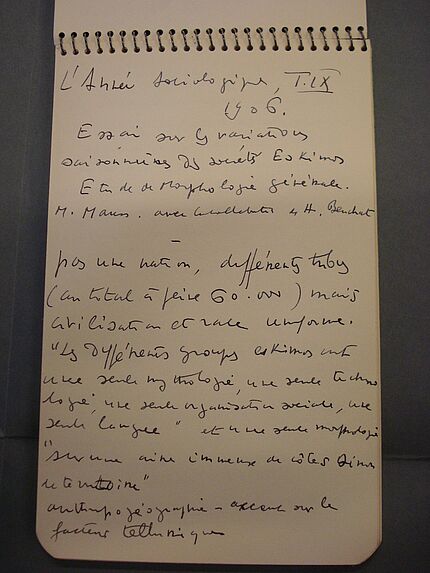 L'Année Sociologique, T. IX
1906.
Essai sur les variations
saisonnières des sociétés Eskimos
Etude de Morphologie générale.
M. Mauss. avec collaboration H. Beuchat
pas une nation, différents tribus
(au total à peine 60.000) mais
civilisation et race uniforme.
"Les différents groupes eskimos ont
une seule mythologie, une seule techno
logie, une seule organisation sociale, une
seule langue" et une seule morphologie
"sur une aire immense de côtes sinon
de territoire"
anthropogéographie - accent sur le
facteur tellurique